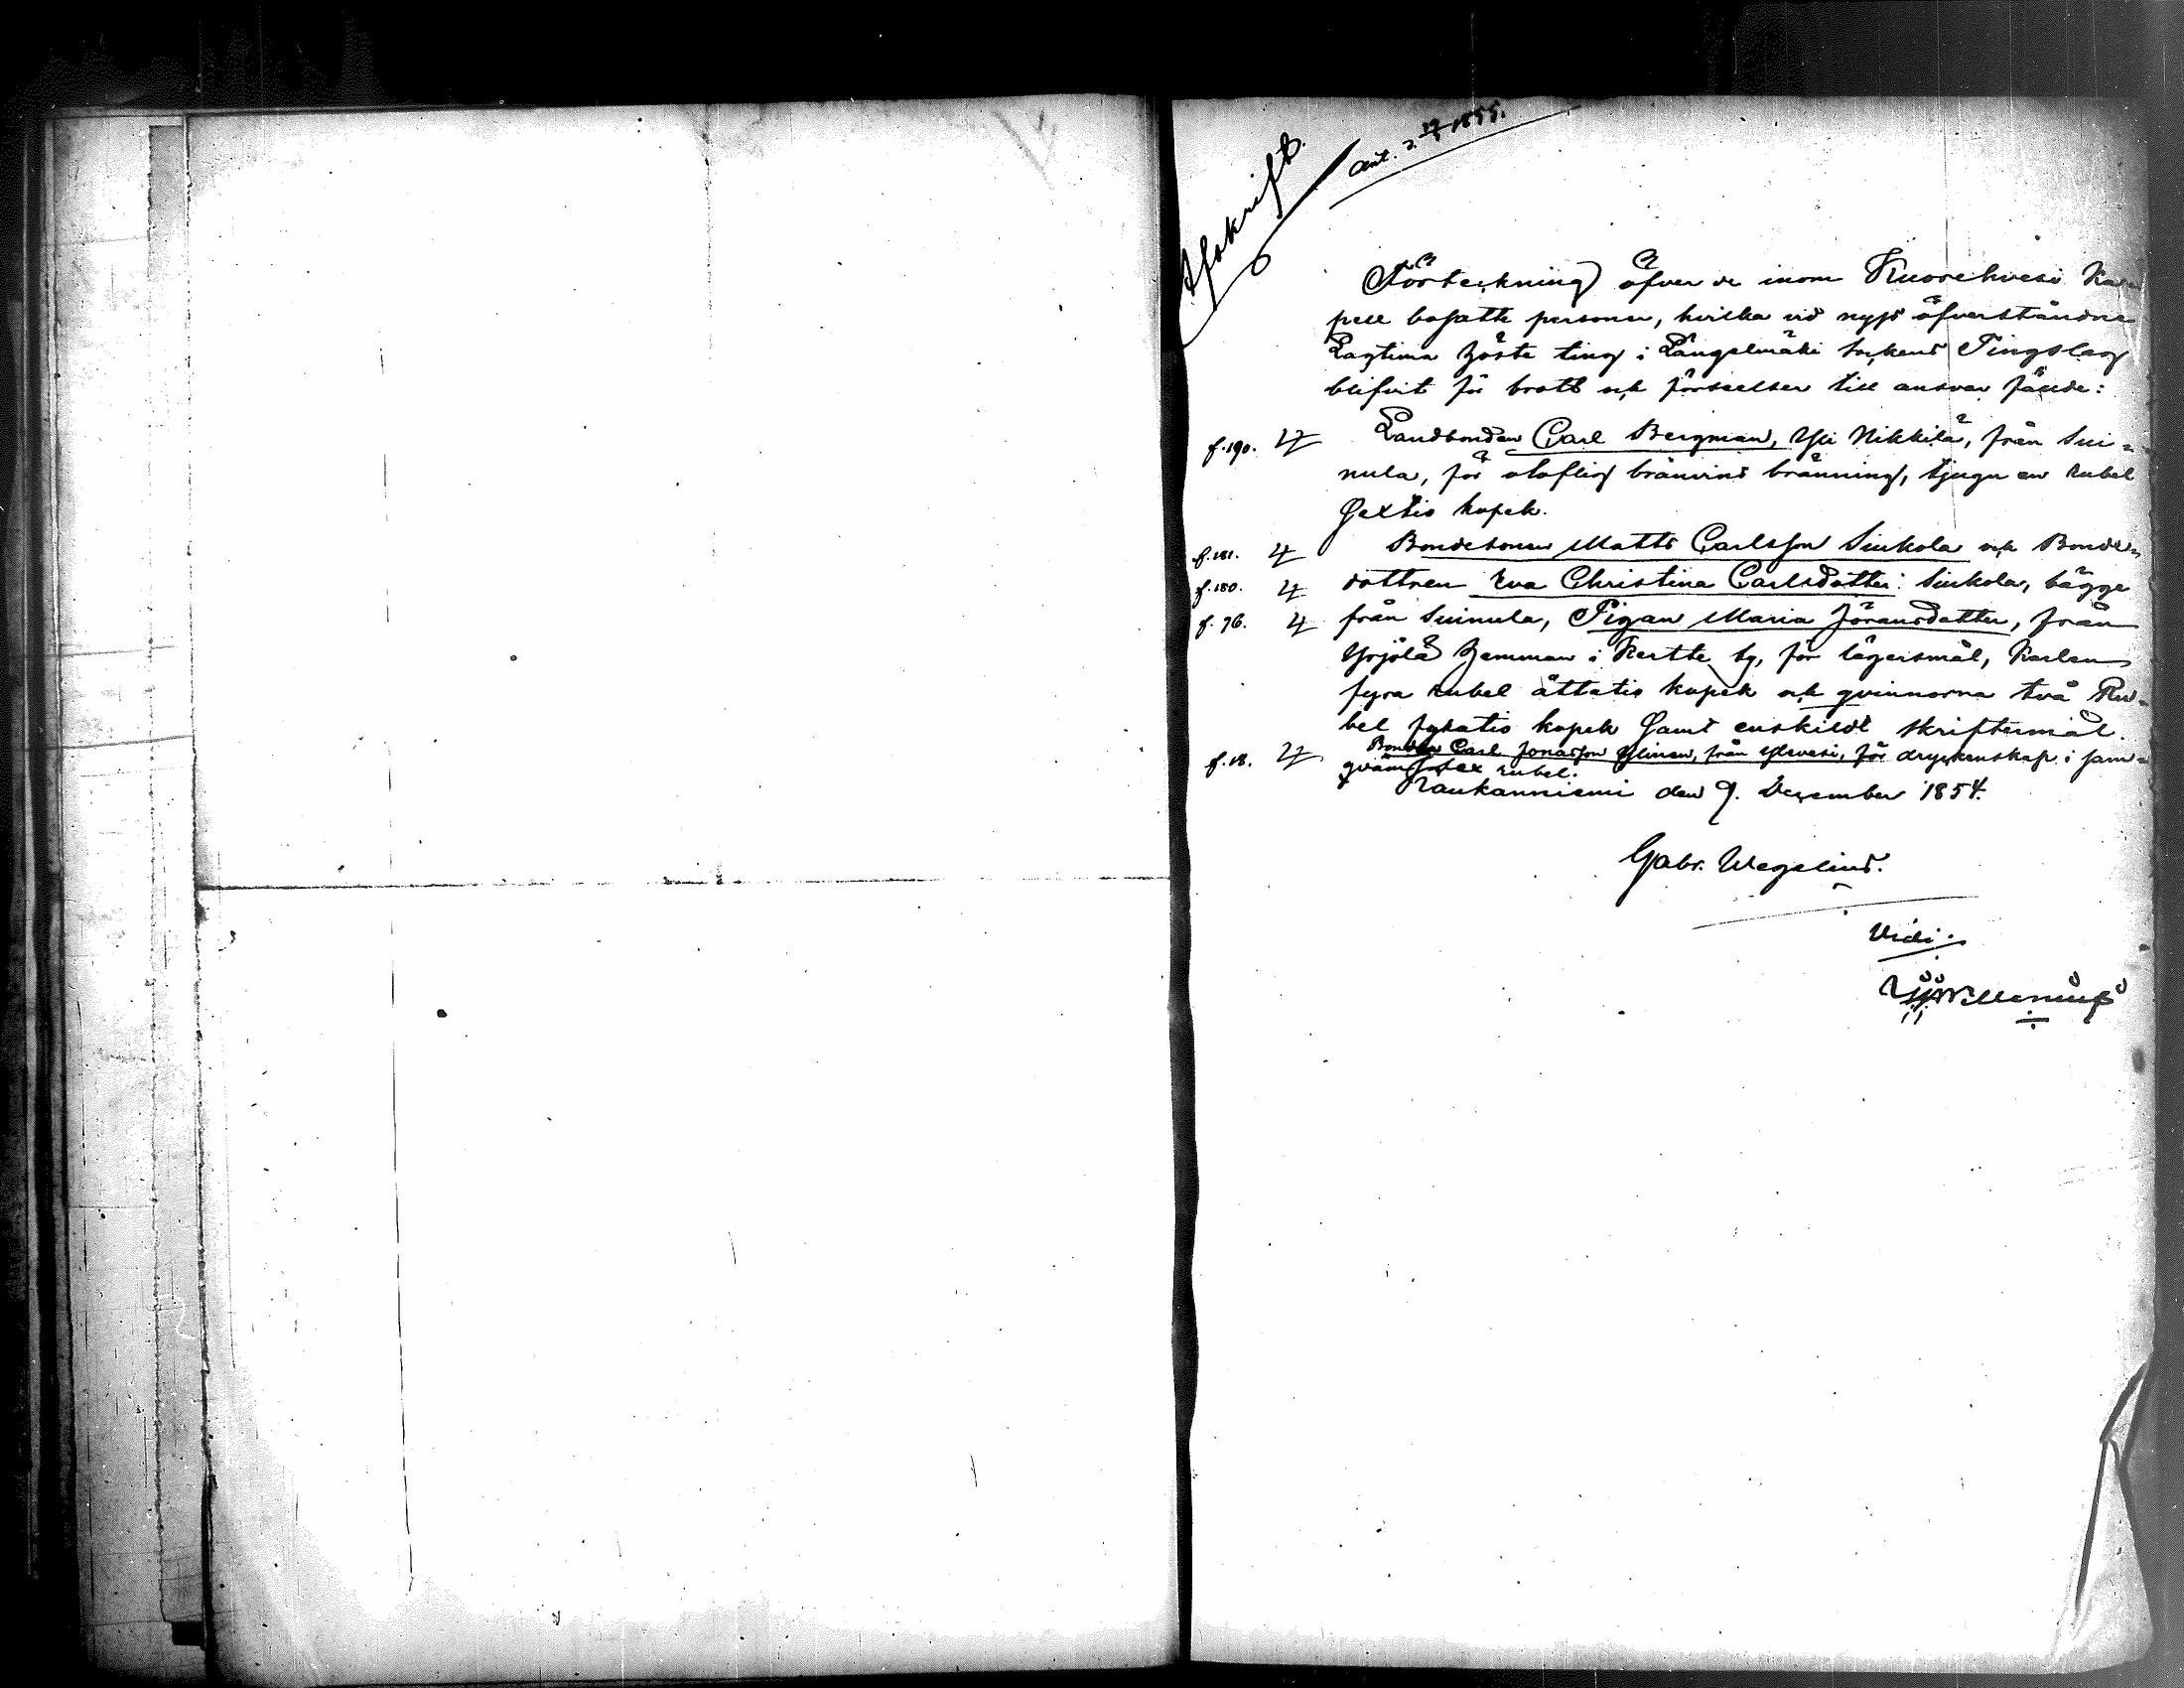 Afskrift.
Ank. d. 1855.
Förteckning öfver de inom Kuorehvesi Ka-
pell bosatte personer, hvilka vid nyss öfverståndne
Lagtima höste ting i Längelmäki Sockens Tingslag
blifvit för brott och förseelser till ansvar fälde:
f. 190. Landbonden Carl Bergman, Yli Nikkilä, från Sui=
nula, för olaflig bränvins bränning, tjugu en rubel
Sextio kopek.
f. 181. Bondesonen Matts Carlsson Siukola och Bonde=
f. 180. dottren Eva Christina Carlsdotter Siukola, bägge
f. 76. från Suinula, Pigan Maria Jöransdotter, från
Yrjölä hemman i Kertte by, för lägersmål, Karlen
fyra rubel åttatio kopek och qvinnorna två Ru=
bel fyratio kopek Samt enskildt skriftermål.
f. 18. Bonden Carl Jonasson Ylinen, från Ylevesi, för dryckenskap i sam=
qväm sex rubel.
Raukanniemi den 9. December 1854.
Gabr. Wegelius.
Vidi.